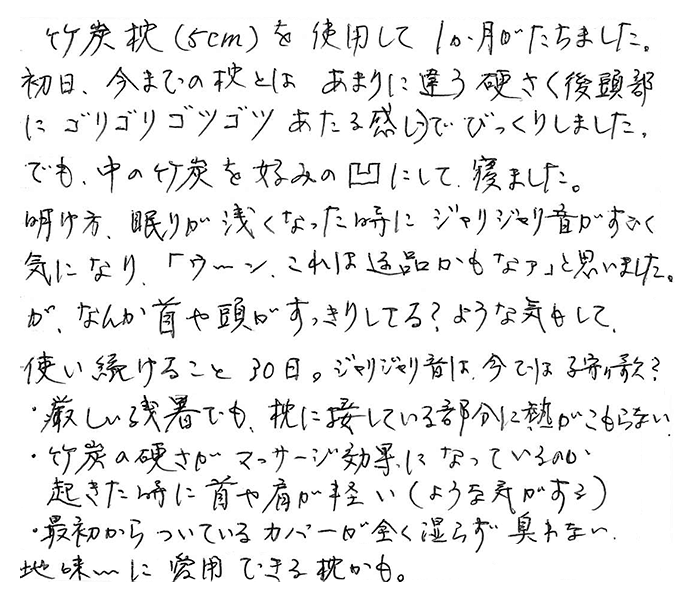 竹炭枕(5cm)を使用して1か月がたちました。
初日、今までの枕とは あまりに違う硬さく後頭部
に ゴリゴリ ゴツゴツ あたる感じでびっくりしました。
でも、中の竹炭を好みの凹にして、寝ました。
明け方、眠りが浅くなった時に ジャリジャリ音がすごく
気になり、「ウ〜ン、これは返品かもなァ」と思いました。
が、なんか首や頭がすっきりしてる?ような気もして、
使い続けること 30日。ジャリジャリ音は、今では子守り歌?
・厳しい残暑でも、枕に接している部分に熱がこもらない
・竹炭の硬さがマッサージ効果になっているのか
起きた時に首や肩が軽い(ような気がする)
・最初からついているカバーが全く湿らず臭わない。
地味〜に愛用できる枕かも。